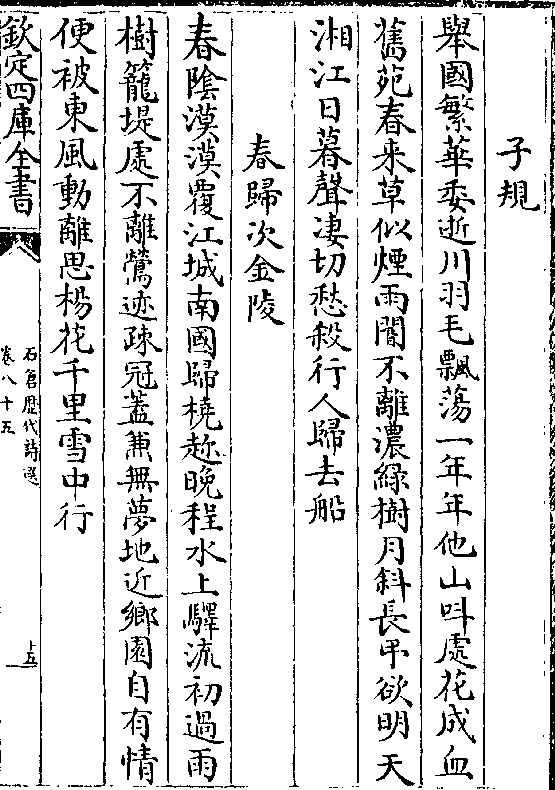 子規
舉國繁華委逝川羽毛飄蕩一年年他山呌處花成血
舊苑春来草似煙雨闇不離濃綠樹月斜長弔欲明天
湘江日暮聲凄切愁殺行人歸去船
春歸次金陵
春陰漠漠覆江城南國歸橈趂晚程水上驛流初過雨
樹籠堤處不離鶯迹疎冠蓋兼無夢地近鄉園自有情
便被東風動離思楊花千里雪中行
欽定四庫全書
石倉歴代詩選
卷八十五
十五